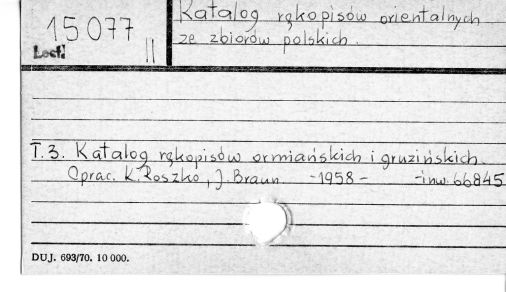 15077
II
Lect.
Katalog rękopisów orientalnych
ze zbiorów polskich.
T. 3. Katalog rękopisów ormiańskich i gruzińskich.
Oprac. K. Roszko, J. Braun. -1958- -inw. 66845
DUJ. 693/70. 10 000.